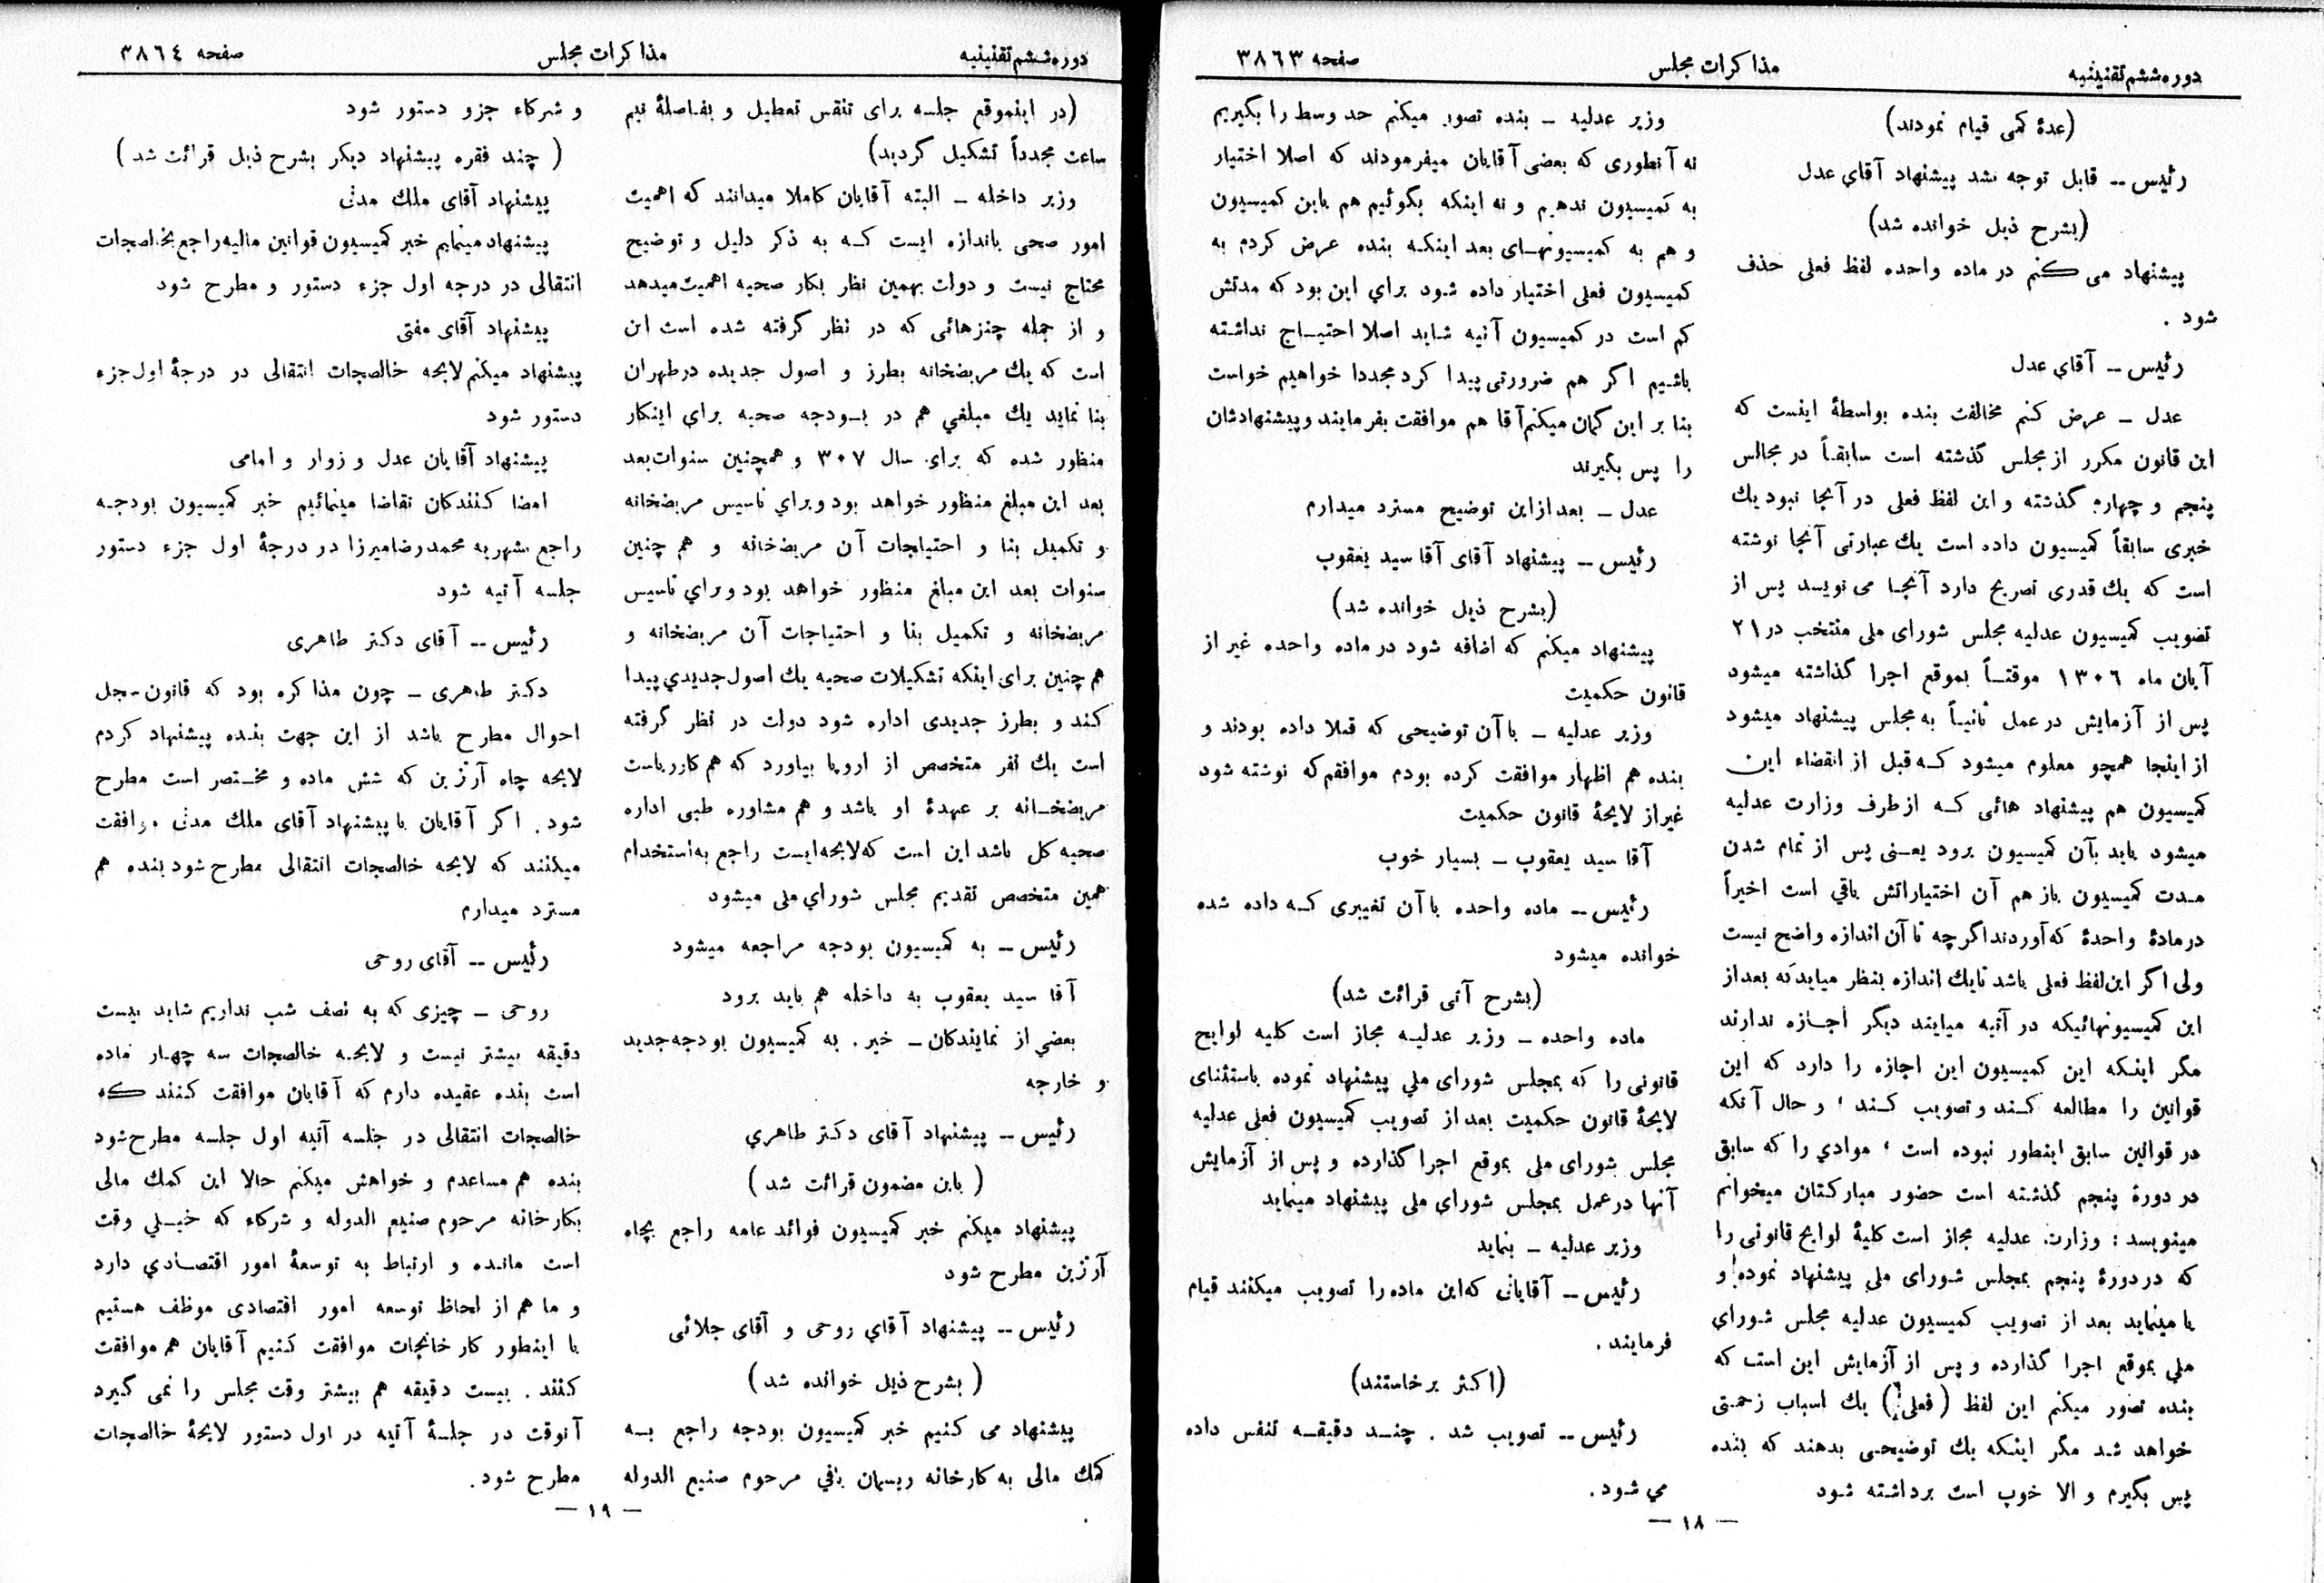 دوره ششم تقنینیه
مذاکرات مجلس
صفحه ۳۸٦۳
(عدهٔ کمی قیام نمودند)
رئیس -- قابل توجه نشد پیشنهاد آقاي عدل
(بشرح ذیل خوانده شد)
پیشنهاد می کنم در ماده واحده لفظ فعلی حذف
شود .
رئیس -- آقاي عدل
عدل - عرض کنم مخالفت بنده بواسطهٔ اینست که
این قانون مکرر از مجلس گذشته است سابقاً در مجالس
پنجم و چهارم گذشته و این لفظ فعلی در آنجا نبود یك
خبری سابقاً کمیسیون داده است یك عبارتی آنجا نوشته
است که یك قدری تصریح دارد آنجا می نویسد پس از
تصویب کمیسیون عدلیه مجلس شورای ملی منتخب در ۲۱
آبان ماه ۱۳۰٦ موقتاً بموقع اجرا گذاشته میشود
پس از آزمایش در عمل ثانیاً به مجلس پیشنهاد میشود
از اینجا همچو معلوم میشود که قبل از انقضاء این
کمیسیون هم پیشنهاد هائی که از طرف وزارت عدلیه
میشود باید بآن کمیسیون برود یعنی پس از تمام شدن
مدت کمیسیون باز هم آن اختیاراتش باقي است اخیراً
در مادهٔ واحدهٔ که آوردند اگر چه تا آن اندازه واضح نیست
ولی اگر این لفظ فعلی باشد تا یك اندازه بنظر میاید که بعد از
این کمیسیونهائیکه در آتیه میایند دیگر اجازه ندارند
مگر اینکه این کمیسیون این اجازه را دارد که این
قوانین را مطالعه کند و تصویب کند ، و حال آنکه
در قوانین سابق اینطور نبوده است ، موادي را که سابق
در دورهٔ پنجم گذشته است حضور مبارکتان میخوانم
مینویسد : وزارت عدلیه مجاز است کلیهٔ لوایح قانونی را
که در دورهٔ پنجم بمجلس شورای ملی پیشنهاد نموده و
یا مینماید بعد از تصویب کمیسیون عدلیه مجلس شورای
ملي بموقع اجرا گذارده و پس از آزمایش این است که
بنده تصور میکنم این لفظ (فعلی) یك اسباب زحمتی
خواهد شد مگر اینکه یك توضیحی بدهند که بنده
پس بگیرم و الا خوب است برداشته شود
وزیر عدلیه - بنده تصور میکنم حد وسط را بگیریم
نه آنطوری که بعضی آقایان میفرمودند که اصلا اختیار
به کمیسیون ندهیم و نه اینکه بگوئیم هم باین کمیسیون
و هم به کمیسیونهای بعد اینکه بنده عرض کردم به
کمیسیون فعلی اختیار داده شود براي این بود که مدتش
کم است در کمیسیون آتیه شاید اصلا احتیاج نداشته
باشیم اگر هم ضرورتی پیدا کرد مجددا خواهیم خواست
بنا بر این گمان میکنم آقا هم موافقت بفرمایند و پیشنهادشان
را پس بگیرند
عدل - بعد از این توضیح مسترد میدارم
رئیس -- پیشنهاد آقای آقا سید یعقوب
(بشرح ذیل خوانده شد)
پیشنهاد میکنم که اضافه شود در ماده واحده غیر از
قانون حکمیت
وزیر عدلیه - با آن توضیحی که قبلا داده بودند و
بنده هم اظهار موافقت کرده بودم موافقم که نوشته شود
غیر از لایحهٔ قانون حکمیت
آقا سید یعقوب - بسیار خوب
رئیس -- ماده واحده با آن تغییری که داده شده
خوانده میشود
(بشرح آتی قرائت شد)
ماده واحده - وزیر عدلیه مجاز است کلیه لوایح
قانونی را که بمجلس شورای ملي پیشنهاد نموده باستثنای
لایحهٔ قانون حکمیت بعد از تصویب کمیسیون فعلی عدلیه
مجلس شورای ملی بموقع اجرا گذارده و پس از آزمایش
آنها در عمل بمجلس شوراي ملی پیشنهاد مینماید
وزیر عدلیه - بنماید
رئیس -- آقایانی که این ماده را تصویب میکنند قیام
فرمایند .
(اکثر برخاستند)
رئیس -- تصویب شد . چند دقیقه تنفس داده
مي شود .
— ۱۸ —
دوره ششم تقنینیه
مذاکرات مجلس
صفحه ۳۸٦٤
(در اینموقع جلسه برای تنفس تعطیل و بفاصلهٔ نیم
ساعت مجدداً تشکیل گردید)
وزیر داخله - البته آقایان کاملا میدانند که اهمیت
امور صحی باندازه ایست که به ذکر دلیل و توضیح
محتاج نیست و دولت بهمین نظر بکار صحیه اهمیت میدهد
و از جمله چیزهائی که در نظر گرفته شده است این
است که یك مریضخانه بطرز و اصول جدیده در طهران
بنا نماید یك مبلغي هم در بودجه صحیه برای اینکار
منظور شده که برای سال ۳۰۷ و همچنین سنوات بعد
بعد این مبلغ منظور خواهد بود و براي تاسیس مریضخانه
و تکمیل بنا و احتیاجات آن مریضخانه و هم چنین
سنوات بعد این مبلغ منظور خواهد بود و براي تاسیس
مریضخانه و تکمیل بنا و احتیاجات آن مریضخانه و
هم چنین برای اینکه تشکیلات صحیه یك اصول جدیدي پیدا
کند و بطرز جدیدی اداره شود دولت در نظر گرفته
است یك نفر متخصص از اروپا بیاورد که هم کار ریاست
مریضخانه بر عهدهٔ او باشد و هم مشاوره طبی اداره
صحیه کل باشد این است که لایحه ایست راجع به استخدام
همین متخصص تقدیم مجلس شوراي ملی میشود
رئیس - به کمیسیون بودجه مراجعه میشود
آقا سید یعقوب به داخله هم باید برود
بعضي از نمایندکان - خیر . به کمیسیون بودجه جدید
و خارجه
رئیس -- پیشنهاد آقای دکتر طاهري
( باین مضمون قرائت شد )
پیشنهاد میکنم خبر کمیسیون فوائد عامه راجع بچاه
آرتزین مطرح شود
رئیس -- پیشنهاد آقاي روحی و آقای جلائی
( بشرح ذیل خوانده شد )
پیشنهاد می کنیم خبر کمیسیون بودجه راجع به
کمك مالی به کارخانه ریسمان بافي مرحوم صنیع الدوله
و شرکاء جزو دستور شود
( چند فقره پیشنهاد دیکر بشرح ذیل قرائت شد )
پیشنهاد آقای ملك مدنی
پیشنهاد مینمایم خبر کمیسیون قوانین مالیه راجع بخالصجات
انتقالی در درجه اول جزء دستور و مطرح شود
پیشنهاد آقای مفتی
پیشنهاد میکنم لایحه خالصجات انتقالی در درجهٔ اول جزء
دستور شود
پیشنهاد آقایان عدل و زوار و امامی
امضا کنندکان تقاضا مینمائیم خبر کمیسیون بودجه
راجع بشهریه محمد رضا میرزا در درجهٔ اول جزء دستور
جلسه آتیه شود
رئیس -- آقای دکتر طاهری
دکتر طاهری - چون مذاکره بود که قانون سجل
احوال مطرح باشد از این جهت بنده پیشنهاد کردم
لایحه چاه آرتزین که شش ماده و مختصر است مطرح
شود . اگر آقایان با پیشنهاد آقای ملك مدنی موافقت
میکنند که لایحه خالصجات انتقالی مطرح شود بنده هم
مسترد میدارم
رئیس -- آقای روحی
روحی - چیزی که به نصف شب نداریم شاید بیست
دقیقه بیشتر نیست و لایحه خالصجات سه چهار ماده
است بنده عقیده دارم که آقایان موافقت کنند که
خالصجات انتقالی در جلسه آتیه اول جلسه مطرح شود
بنده هم مساعدم و خواهش میکنم حالا این کمك مالی
بکارخانه مرحوم صنیع الدوله و شرکاء که خیلي وقت
است مانده و ارتباط به توسعهٔ امور اقتصادي دارد
و ما هم از لحاظ توسعه امور اقتصادی موظف هستیم
با اینطور کارخانجات موافقت کنیم آقایان هم موافقت
کنند . بیست دقیقه هم بیشتر وقت مجلس را نمی گیرد
آنوقت در جلسهٔ آتیه در اول دستور لایحهٔ خالصجات
مطرح شود.
— ۱۹ —